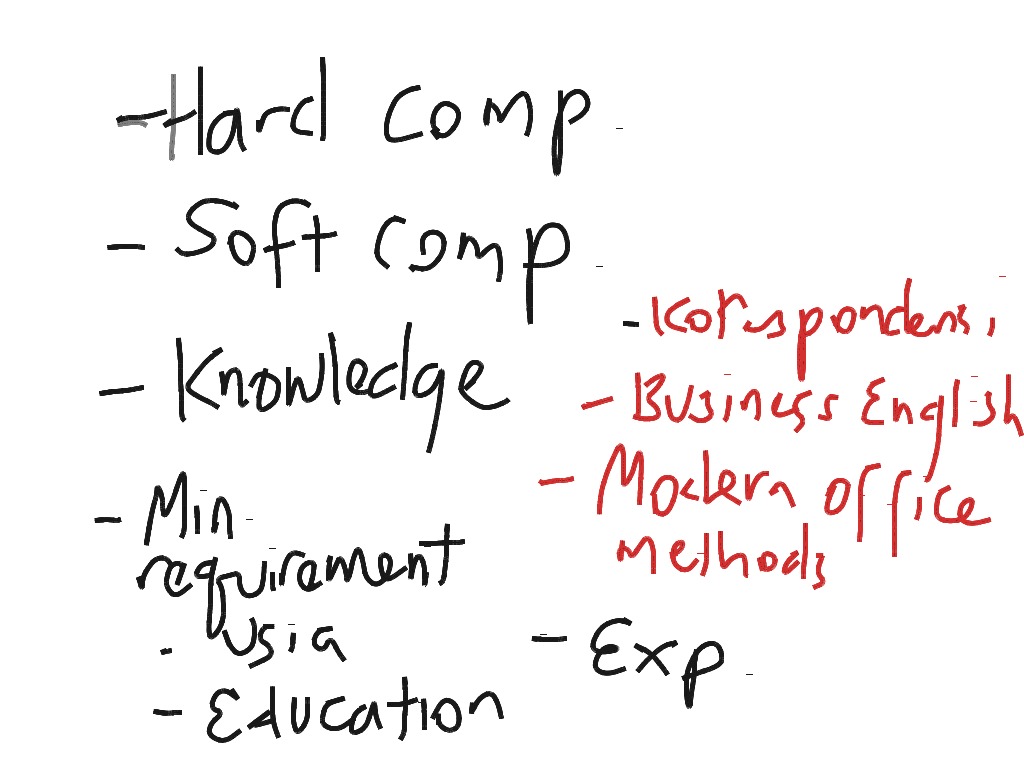 - Hard comp.
- Soft comp.
- Knowledge
- Korespondensi
- Business English
- Modern office
methods
- Min.
requirement
- Usia
- Education
- Exp.